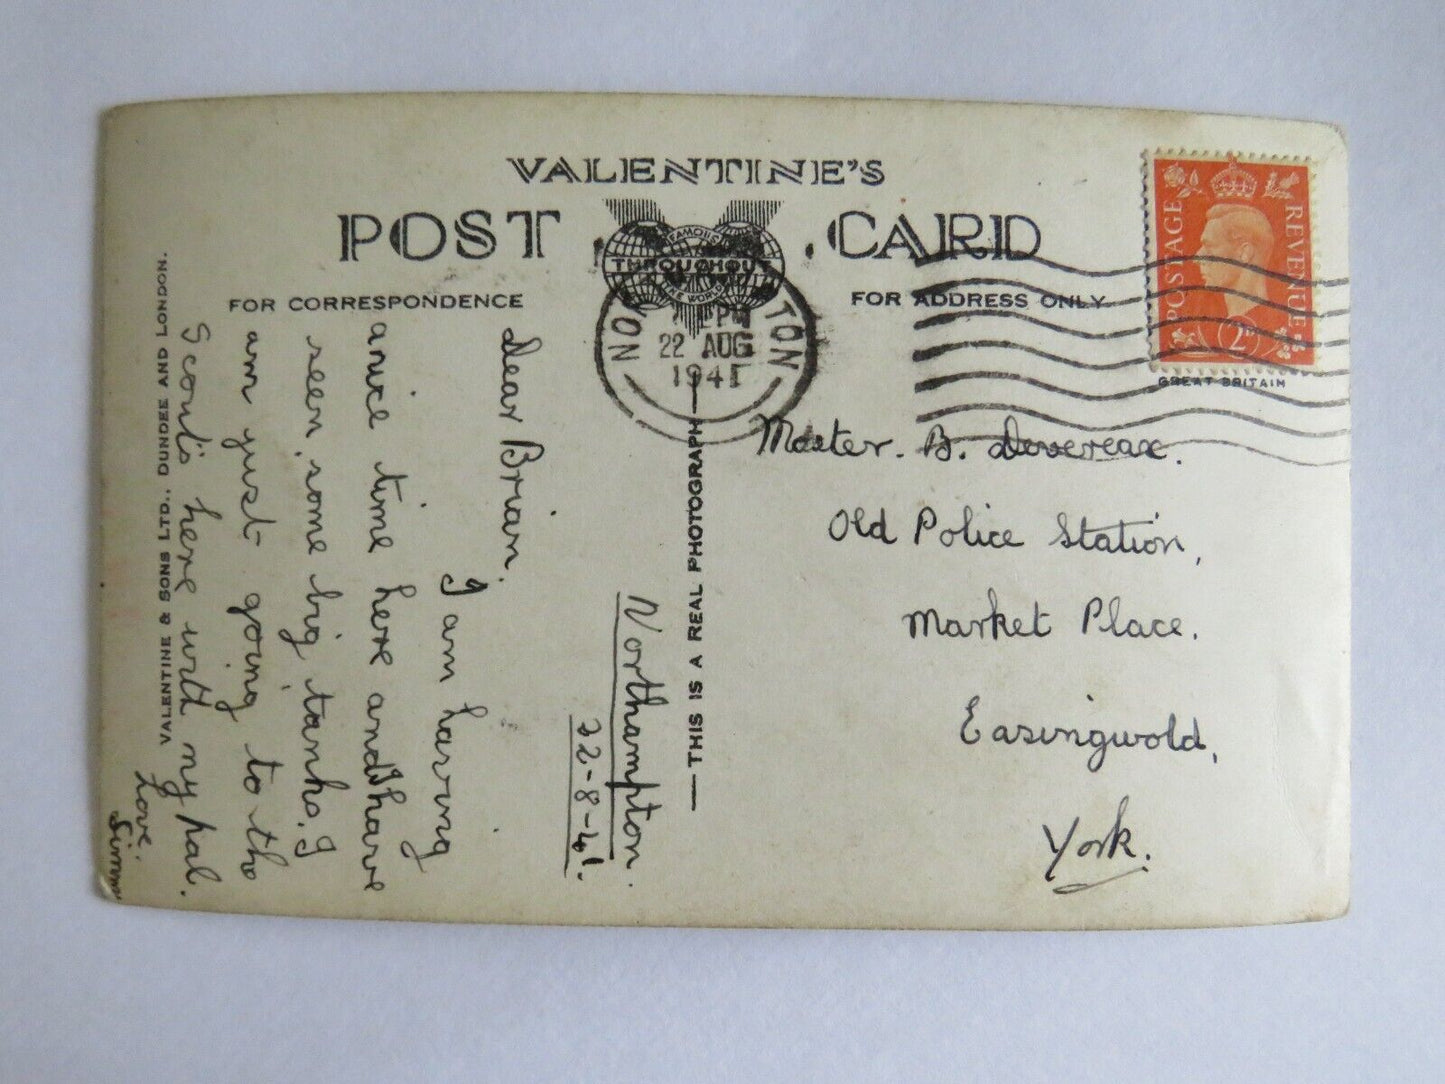 VALENTINE'S
POST CARD
FAMOUS
THROUGHOUT
THE WORLD
FOR CORRESPONDENCE
FOR ADDRESS ONLY
POSTAGE
REVENUE
2D
GREAT BRITAIN
NO TON
PM
22 AUG
1941
VALENTINE & SONS LTD., DUNDEE AND LONDON.
THIS IS A REAL PHOTOGRAPH
Northampton.
22-8-41.
Dear Brian.
I am having
a nice time here and I have
seen some big tanks. I
am just going to the
Scouts here with my pal.
Love.
Master. B. Devereax.
Old Police Station,
Market Place.
Easingwold,
York.